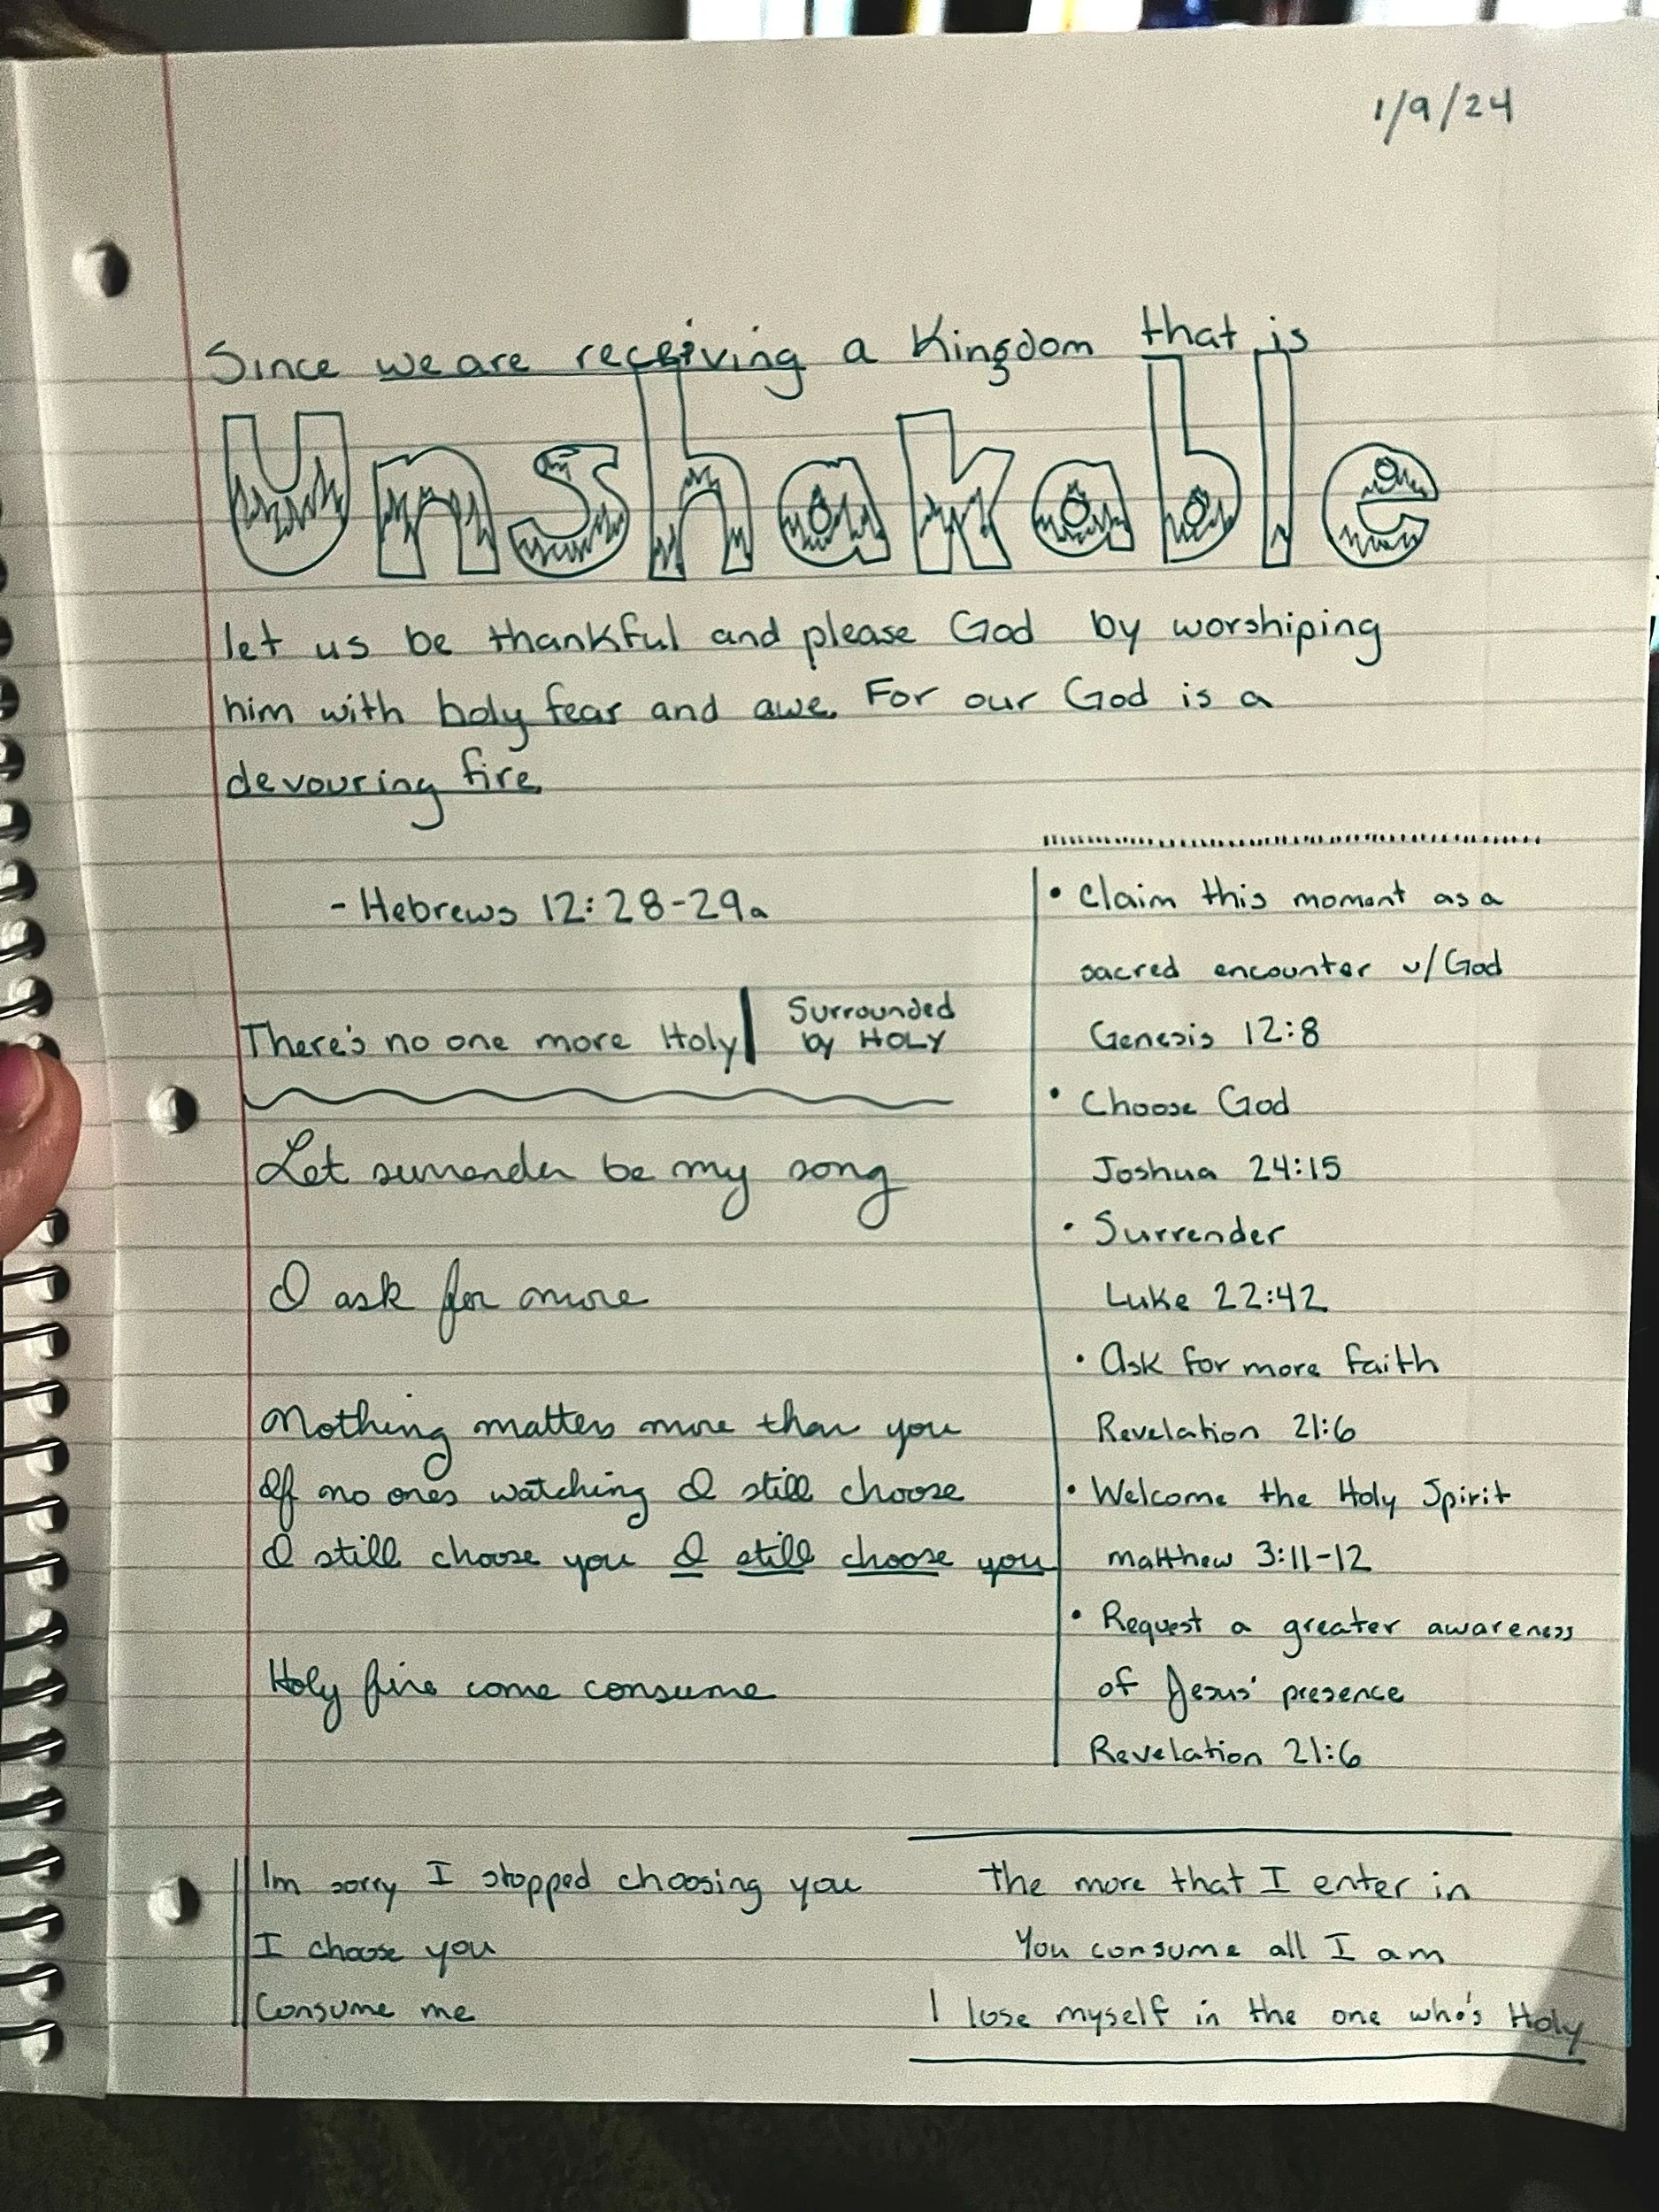 1/9/24
Since we are receiving a Kingdom that is
Unshakable
let us be thankful and please God by worshiping
him with holy fear and awe. For our God is a
devouring fire.
- Hebrews 12:28-29a
There's no one more Holy
Surrounded
by HOLY
Let surrender be my song
I ask for more
Nothing matters more than you
If no ones watching I still choose
I still choose you I still choose you
Holy fire come consume
• Claim this moment as a
sacred encounter w/God
Genesis 12:8
• Choose God
Joshua 24:15
• Surrender
Luke 22:42
• Ask for more faith
Revelation 21:6
• Welcome the Holy Spirit
Matthew 3:11-12
• Request a greater awareness
of Jesus' presence
Revelation 21:6
Im sorry I stopped choosing you
I choose you
Consume me
The more that I enter in
You consume all I am
I lose myself in the one who's Holy